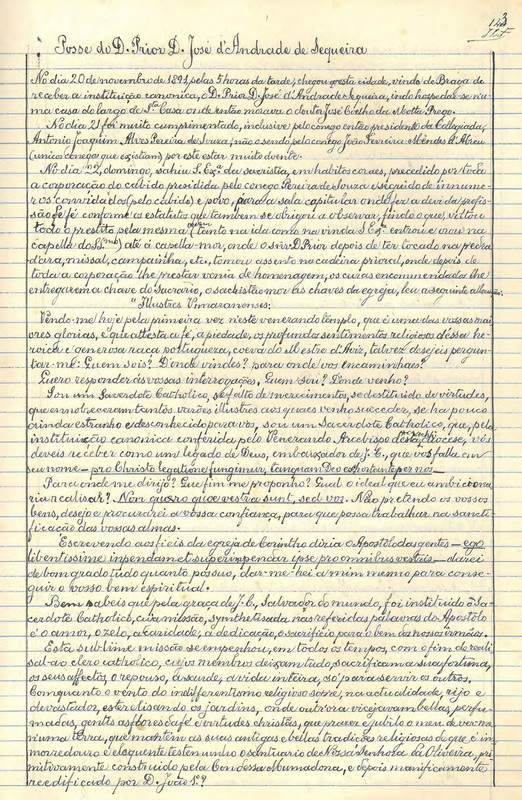 3
143
Posse do D. Prior D. José d'Andrade de Sequeira
No dia 20 de novembro de 1891, pelas 5 horas da tarde, chegou a esta cidade, vindo de Braga de
receber a instituição canonica, o D. Prior D. José d'Andrade Sequeira, indo hospedar-se n'u
ma casa do largo de Sta Casa onde então morava o doutor José Coelho da Motta Prego.
No dia 21 foi muito cumprimentado, inclusive pelo conego então presidente da Collegiada,
Antonio Joaquim Alves Pereira de Souza; não o sendo pelo conego João Pereira Mendes d'Abreu
(unicos conegos que existiam) por este estar muito doente.
No dia 22, domingo, sahiu S. Exª da sacristia, em habitos coraes, precedido por toda
a corporação do cabido presidida pelo conego Pereira de Souza e seguido de innume-
ros convidados (pelo cabido) e povo, para a sala capitular onde fez a devida profis-
são de fé conforme os estatutos que tambem se obrigou a observar, findo o que, voltou
todo o prestito pela mesma ordem (tanto na ida como na vinda S. Exª entrou e orou na
capella do SS.mo) até á capella-mór, onde o snr. D. Prior depois de ter tocado na pedra
d'ara, missal, campainha, etc., tomou assento na cadeira prioral, onde depois de
toda a corporação lhe prestar venia de homenagem, os curas encommendados lhe
entregarem a chave do Sacrario, o sacristão-mór as chaves da egreja, leu a seguinte allocução:
"Illustres Vimaranenses:
Vendo-me hoje pela primeira vez n'este venerando templo, que é uma das vossas mai-
ores glorias, e que attesta a fé, a piedade, os profundos sentimentos religiosos d'essa he-
roica e generosa raça portugueza, coeva do Mestre d'Aviz, talvez desejeis pergun-
tar-me: Quem sois? D'onde vindes? para onde vos encaminhaes?
Quero responder ás vossas interrogações. Quem sou? D'onde venho?
Sou um Sacerdote Catholico, se falto de merecimentos, se destituido de virtudes,
que ennobreceram tantos varões illustres aos quaes venho succeder, se ha pouco
ainda estranho e desconhecido para vós, sou um Sacerdote Catholico, que, pela
instituição canonica conferida pelo Venerando Arcebispo d'esta Diocese, vós
deveis receber como um legado de Deus, embaixador de J. C., que vos falla em
seu nome — pro Christo legatione fungimur, tanquam Deo exhortante per nos —
Para onde me dirijo? Que fim me proponho? Qual o ideal que eu ambiciona-
ria realisar? Non quæro quæ vestra sunt, sed vos. Não pretendo os vossos
bens, desejo e procurarei a vossa confiança, para que possa trabalhar na sancti-
ficação das vossas almas.
Escrevendo aos fieis da egreja de Corintho dizia o Apostolo das gentes — ego
libentissime inpendam et superinpendar ipse pro omnibus vestris — darei
de bom grado tudo quanto possuo, dar-me-hei a mim mesmo para conse-
guir o vosso bem espiritual.
Bem sabeis que pela graça de J. C., Salvador do mundo, foi instituido o Sa-
cerdote Catholico, cuja missão, synthetisada nas referidas palavras do Apostolo
é o amor, o zelo, a caridade, a dedicação, o sacrificio para o bem dos nossos irmãos.
Esta sublime missão se empenhou, em todos os tempos, com o fim de reali-
sal-a o clero catholico, cujos membros deixam tudo, sacrificam a sua fortuna,
os seus affectos, o repouso, a saude, a vida inteira, só para servir os outros.
Comquanto o vento do indifferentismo religioso sopre, na actualidade, rijo e
devastador, esterilisando os jardins, onde outr'ora vicejavam bellas, perfu-
madas, gentis as flores da fé e virtudes christãs, que prazer e jubilo o meu de ver-me
n'uma terra, que mantem as suas antigas e bellas tradições religiosas de que é im-
morredouro e eloquente testemunho o santuario de Nossa Senhora da Oliveira, pri-
mitivamente construido pela Condessa Mumadona, e depois manificamente
reedificado por D. João 1º?